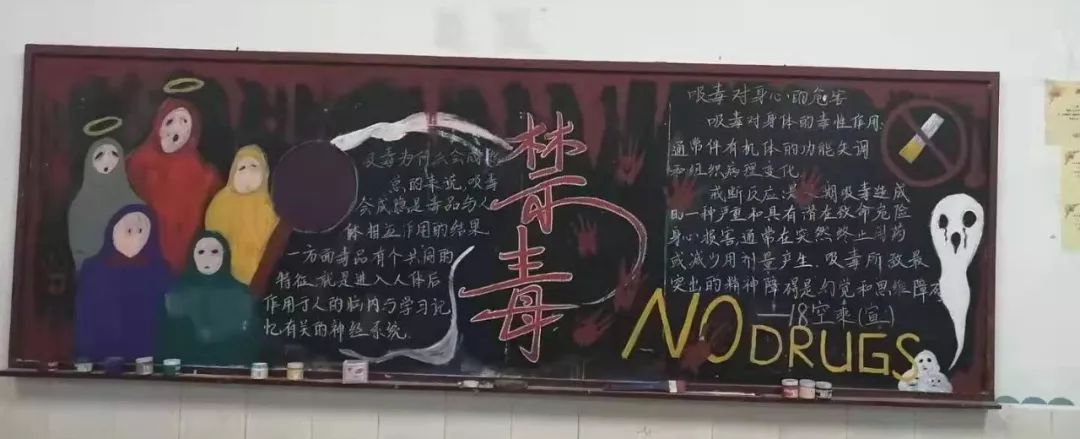 吸毒为什么会成瘾
总的来说,吸毒
会成瘾是毒品与人
体相互作用的结果
一方面毒品有个共同的
特征,就是进入人体后
作用于人的脑内与学习记
忆有关的神经系统.
禁毒
吸毒对身心的危害
吸毒对身体的毒性作用:
通常伴有机体的功能失调
和组织病理变化.
戒断反应:是长期吸毒造成
的一种严重和具有潜在致命危险
身心损害,通常在突然终止用药
或减少用剂量产生.吸毒所致最
突出的精神障碍是幻觉和思维障碍
—18空乘(宣)
NO DRUGS